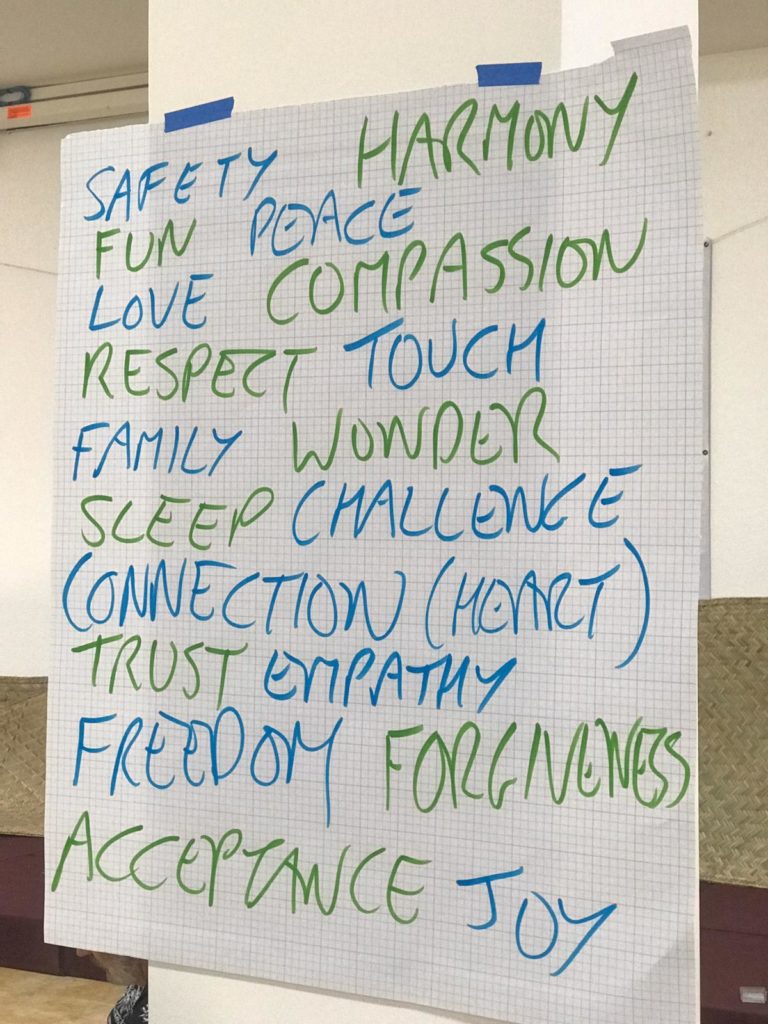 SAFETY HARMONY
FUN PEACE
LOVE COMPASSION
RESPECT TOUCH
FAMILY WONDER
SLEEP CHALLENGE
CONNECTION (HEART)
TRUST EMPATHY
FREEDOM FORGIVENESS
ACCEPTANCE JOY